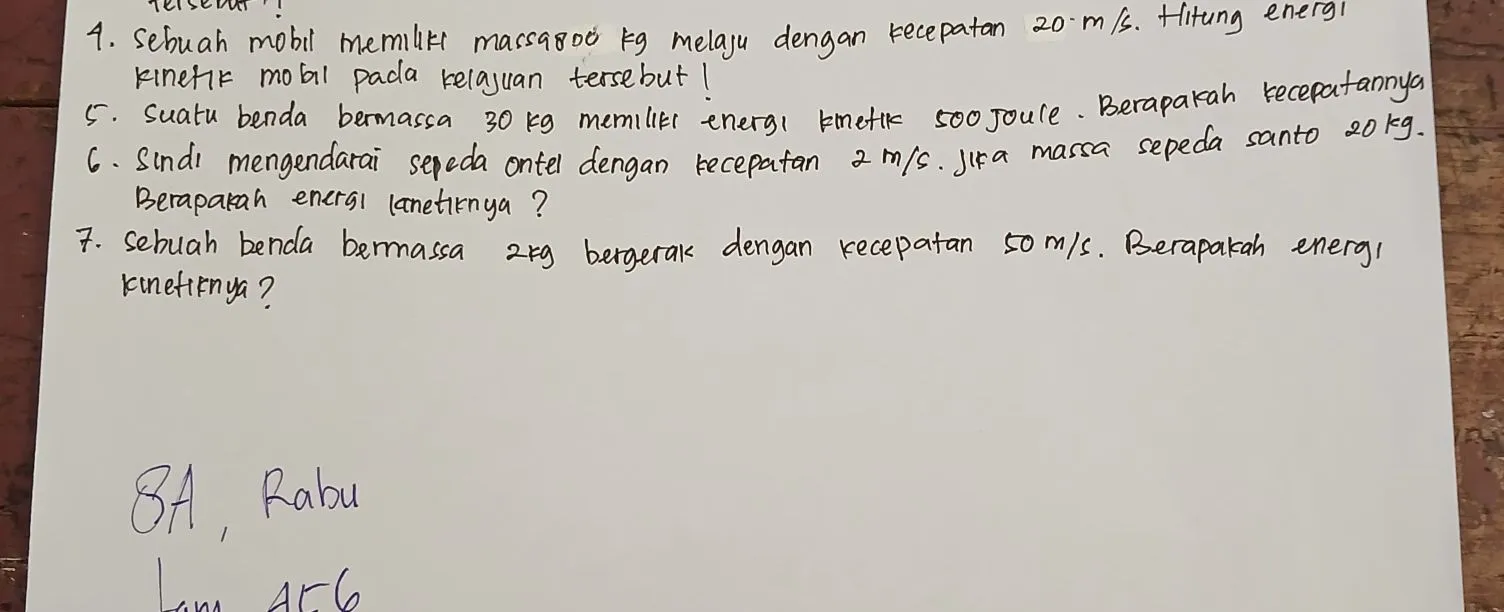 tersebut !
4. Sebuah mobil memiliki massa 800 kg melaju dengan kecepatan 20 m/s. Hitung energi
kinetik mobil pada kelajuan tersebut !
5. Suatu benda bermassa 30 kg memiliki energi kinetik 500 Joule. Berapakah kecepatannya
6. Sindi mengendarai sepeda ontel dengan kecepatan 2 m/s. Jika massa sepeda santo 20 kg.
Berapakah energi kinetiknya ?
7. Sebuah benda bermassa 2 kg bergerak dengan kecepatan 50 m/s. Berapakah energi
kinetiknya ?
8A, Rabu
Jam